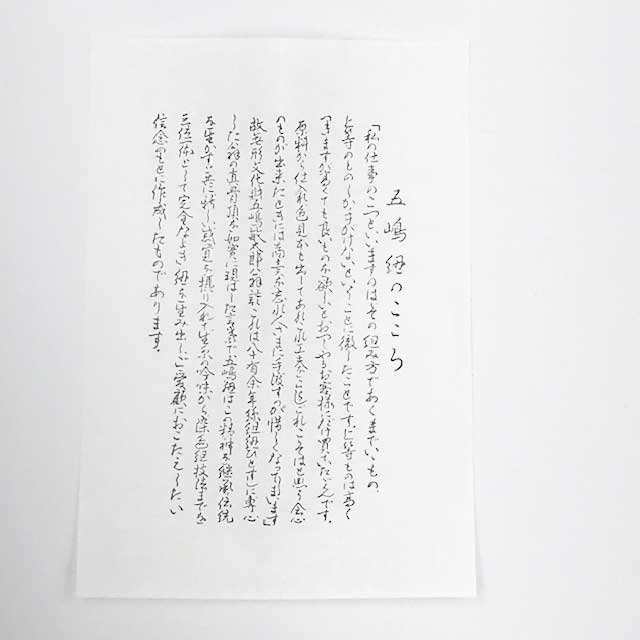 五嶋紐のこころ
「私の仕事のこつといいますのはその組み方であくまでいいもの、
上等のものしか手がけないということに徹したことです。上等ものは高く
つきますが高くても良いものを欲しいとおっしゃるお客様にだけ買っていただくんです。
原料から仕入れ色見本も出してあれこれ工夫をこらしこれこそはと思う会心
のものが出来たときには商売を忘れ人さまに手渡すが惜しくなってしまいます」
故無形文化財五嶋敏太郎翁談これは八十有余年絲組紐ひとすじに専心
した翁の真骨頂を如実に現はした言葉で五嶋紐はこの精神を継承伝統
を生かすと共に新しい感覚を採り入れ生糸の吟味から染色組技法までを
三位一体として完全なよき紐を生み出しご愛顧におこたえしたい
信念のもとに作成したものであります。